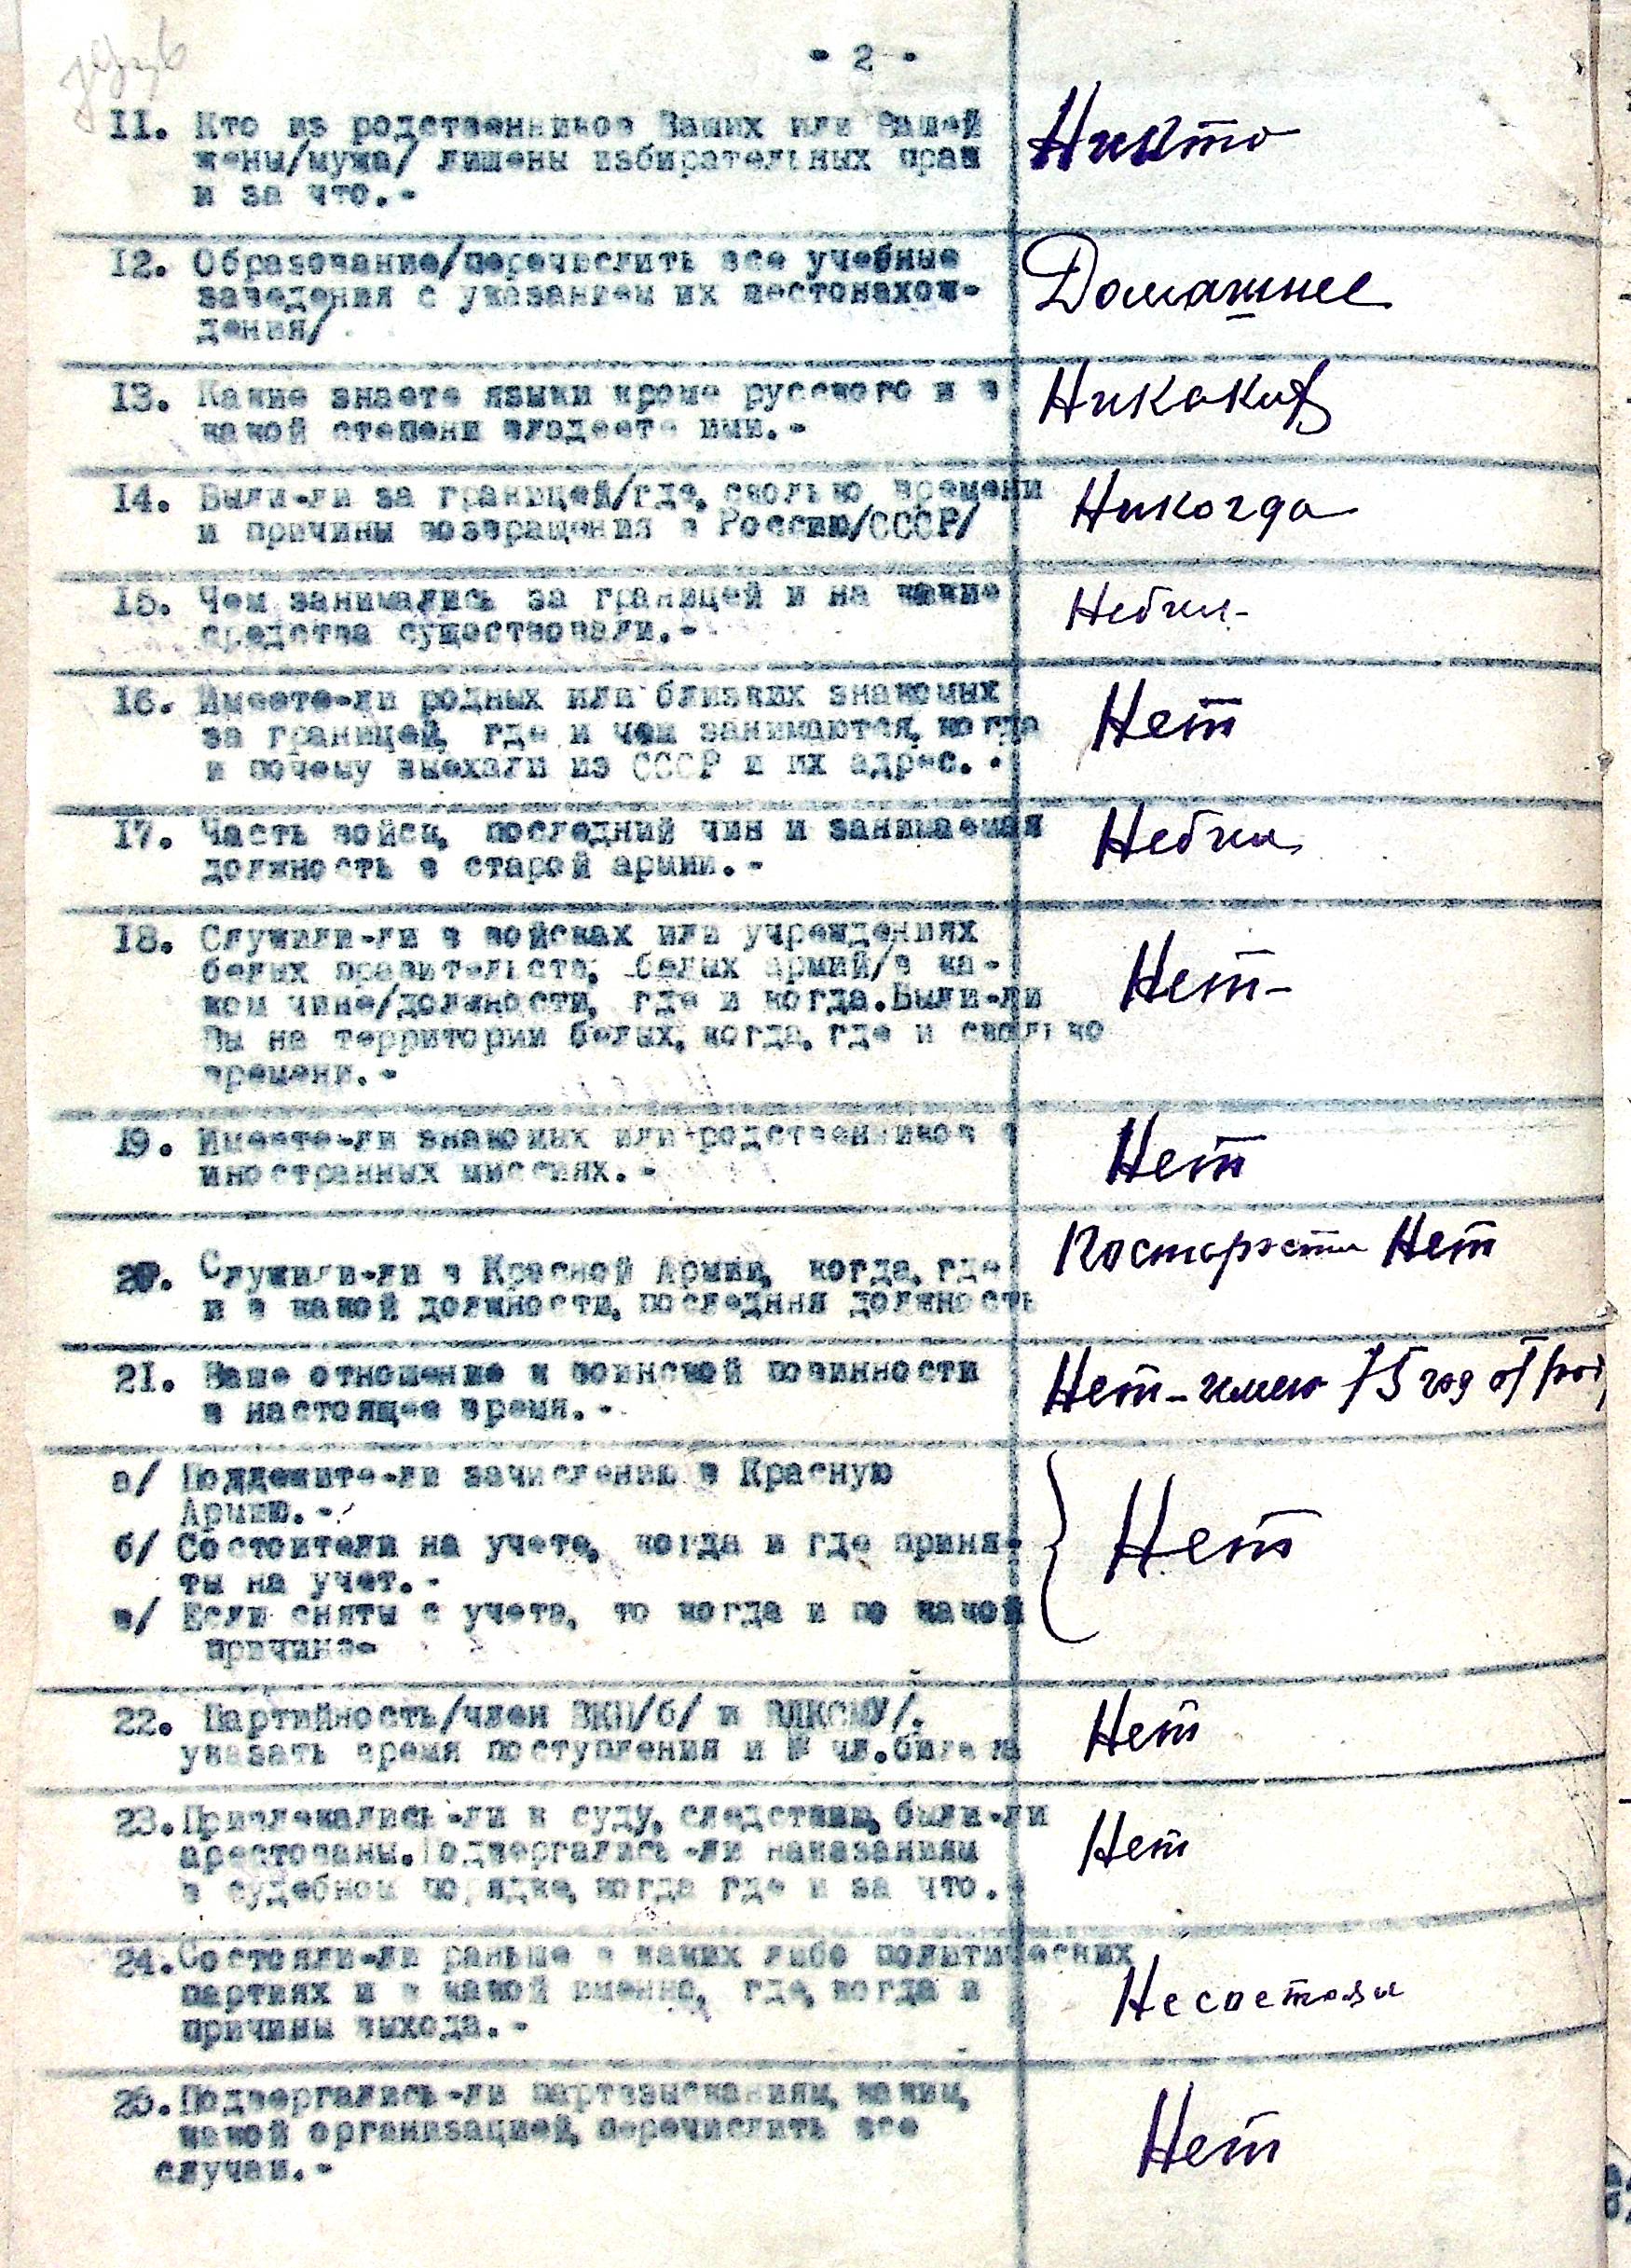 - 2 -
11. Кто из родственников Ваших или Вашей
жены/мужа/ лишены избирательных прав
и за что.-
Никто
12. Образование/перечислить все учебные
заведения с указанием их местонахож-
дения/
Домашнее
13. Какие знаете языки кроме русского и в
какой степени владеете ими.-
Никаких
14. Были-ли за границей/где, сколько времени
и причины возвращения в Россию/СССР/
Никогда
15. Чем занимались за границей и на какие
средства существовали.-
Небыл-
16. Имеете-ли родных или близких знакомых
за границей, где и чем занимаются, когда
и почему выехали из СССР и их адрес.-
Нет
17. Часть войск, последний чин и занимаемая
должность в старой армии.-
Небыл
18. Служили-ли в войсках или учреждениях
белых правительств, белых армий/в ка-
ком чине/должности, где и когда.Были-ли
Вы на территории белых, когда, где и сколько
времени.-
Нет-
19. Имеете-ли знакомых или родственников в
иностранных миссиях.-
Нет
20. Служили-ли в Красной Армии, когда, где
и в какой должности, последняя должность
Постарости Нет
21. Ваше отношение к воинской повинности
в настоящее время.-
Нет-имею 75 год от
а/ Подлежите-ли зачислению в Красную
Армию.-
б/ Состоители на учете, когда и где приня-
ты на учет.-
в/ Если сняты с учета, то когда и по какой
причине-
Нет
22. Партийность/член ВКП/б/ и ВЛКСМ/.
указать время поступления и № чл.билета
Нет
23.Привлекались-ли к суду, следствию, были-ли
арестованы.Подвергались-ли наказаниям
в судебном порядке, когда где и за что.
Нет
24.Состояли-ли раньше в каких либо политических
партиях и в какой именно, где, когда и
причины выхода.-
Несостоял
25.Подвергались-ли партвзысканиям, каким,
какой организацией, перечислить все
случаи.-
Нет